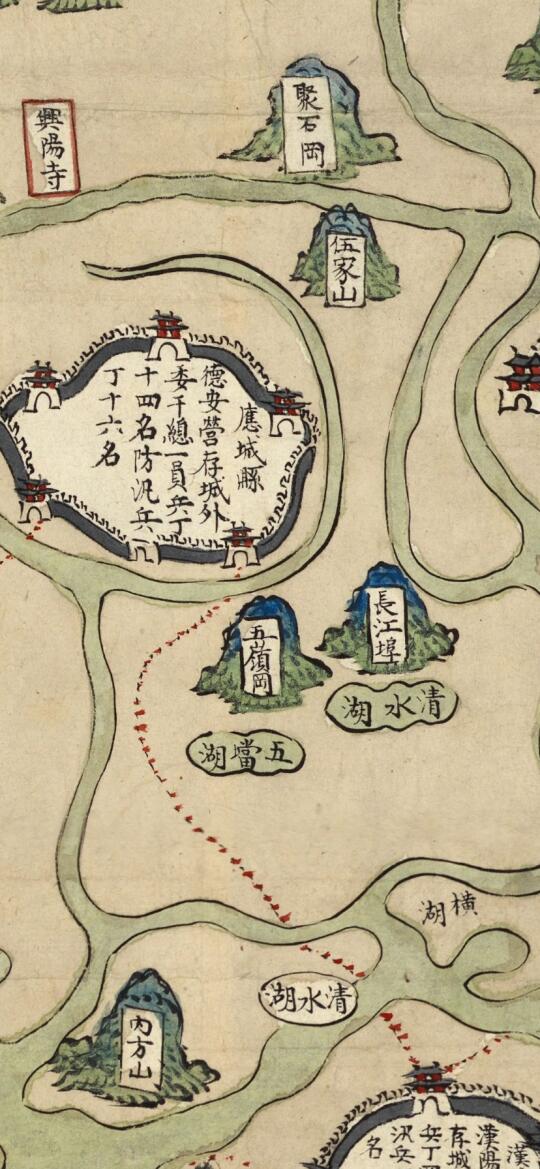 聚石岡
興陽寺
伍家山
應城縣
德安營存城外
委千總一員兵丁
十四名防汛兵
丁十六名
長江埠
五嶺岡
清水湖
五壋湖
橫湖
清水湖
內方山
漢
漢陽
存城
兵丁
汛兵
名